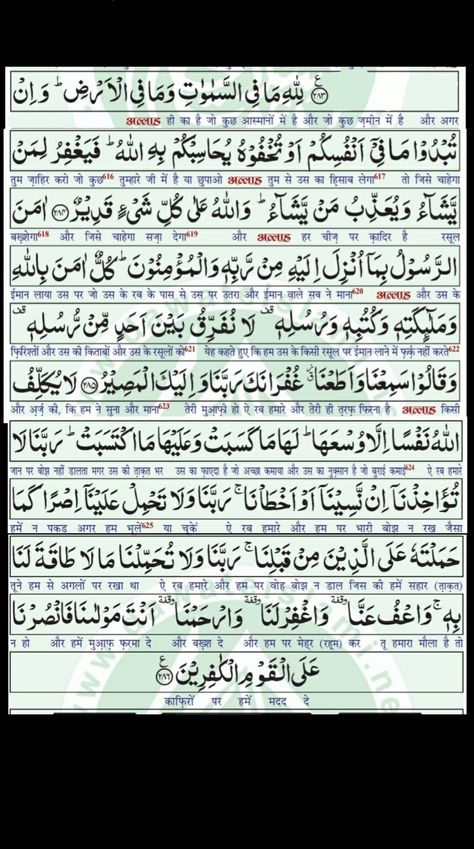 ﴿۲۸۳﴾ لِلّٰهِ مَا فِی السَّمٰوٰتِ وَمَا فِی الْاَرْضِ ؕ وَاِنْ
अल्लाह ही का है जो कुछ आस्मानों में है और जो कुछ ज़मीन में है और अगर
تُبْدُوْا مَا فِیْۤ اَنْفُسِكُمْ اَوْ تُخْفُوْهُ یُحَاسِبْكُمْ بِهِ اللّٰهُ ؕ فَیَغْفِرُ لِمَنْ
तुम ज़ाहिर करो जो कुछ616 तुम्हारे जी में है या छुपाओ अल्लाह तुम से उस का हिसाब लेगा617 तो जिसे चाहेगा
یَّشَآءُ وَیُعَذِّبُ مَنْ یَّشَآءُ ؕ وَاللّٰهُ عَلٰی كُلِّ شَیْءٍ قَدِیْرٌ ﴿۲۸۴﴾ اٰمَنَ
बख़्शेगा618 और जिसे चाहेगा सज़ा देगा619 और अल्लाह हर चीज़ पर क़ादिर है रसूल
الرَّسُوْلُ بِمَاۤ اُنْزِلَ اِلَیْهِ مِنْ رَّبِّهٖ وَالْمُؤْمِنُوْنَ ؕ كُلٌّ اٰمَنَ بِاللّٰهِ
ईमान लाया उस पर जो उस के रब के पास से उस पर उतरा और ईमान वाले सब ने माना620 अल्लाह और उस के
وَمَلٰٓئِكَتِهٖ وَكُتُبِهٖ وَرُسُلِهٖ ۟ لَا نُفَرِّقُ بَیْنَ اَحَدٍ مِّنْ رُّسُلِهٖ ۟
फ़िरिश्तों और उस की किताबों और उस के रसूलों को621 येह कहते हुए कि हम उस के किसी रसूल पर ईमान लाने में फ़र्क़ नहीं करते622
وَقَالُوْا سَمِعْنَا وَاَطَعْنَا ۫ غُفْرَانَكَ رَبَّنَا وَاِلَیْكَ الْمَصِیْرُ ﴿۲۸۵﴾ لَا یُكَلِّفُ
और अर्ज़ की, कि हम ने सुना और माना623 तेरी मुआ़फ़ी हो ऐ रब हमारे और तेरी ही तरफ़ फिरना है अल्लाह किसी
اللّٰهُ نَفْسًا اِلَّا وُسْعَهَا ؕ لَهَا مَا كَسَبَتْ وَعَلَیْهَا مَا اكْتَسَبَتْ ؕ رَبَّنَا لَا
जान पर बोझ नहीं डालता मगर उस की ताक़त भर उस का फ़ाएदा है जो अच्छा कमाया और उस का नुक़्सान है जो बुराई कमाई624 ऐ रब हमारे
تُؤَاخِذْنَاۤ اِنْ نَّسِیْنَاۤ اَوْ اَخْطَاْنَا ۚ رَبَّنَا وَلَا تَحْمِلْ عَلَیْنَاۤ اِصْرًا كَمَا
हमें न पकड़ अगर हम भूलें625 या चूकें ऐ रब हमारे और हम पर भारी बोझ न रख जैसा
حَمَلْتَهٗ عَلَی الَّذِیْنَ مِنْ قَبْلِنَا ۚ رَبَّنَا وَلَا تُحَمِّلْنَا مَا لَا طَاقَةَ لَنَا
तूने हम से अगलों पर रखा था ऐ रब हमारे और हम पर वोह बोझ न डाल जिस की हमें सहार (ताक़त)
بِهٖ ۚ وَاعْفُ عَنَّا ۥ وَاغْفِرْ لَنَا ۥ وَارْحَمْنَا ۥ اَنْتَ مَوْلٰىنَا فَانْصُرْنَا
न हो और हमें मुआ़फ़ फ़रमा दे और बख़्श दे और हम पर मेहर (रहम) कर तू हमारा मौला है तो
عَلَی الْقَوْمِ الْكٰفِرِیْنَ ﴿۲۸۶﴾
काफ़िरों पर हमें मदद दे